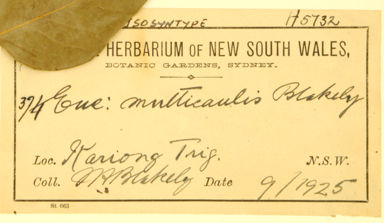 ISOSYNTYPE H5732
HERBARIUM OF NEW SOUTH WALES,
BOTANIC GARDENS, SYDNEY.
37/4 Euc: multicaulis Blakely
Loc. Kariong Trig. N.S.W.
Coll. W Blakely Date 9/1925
St 663